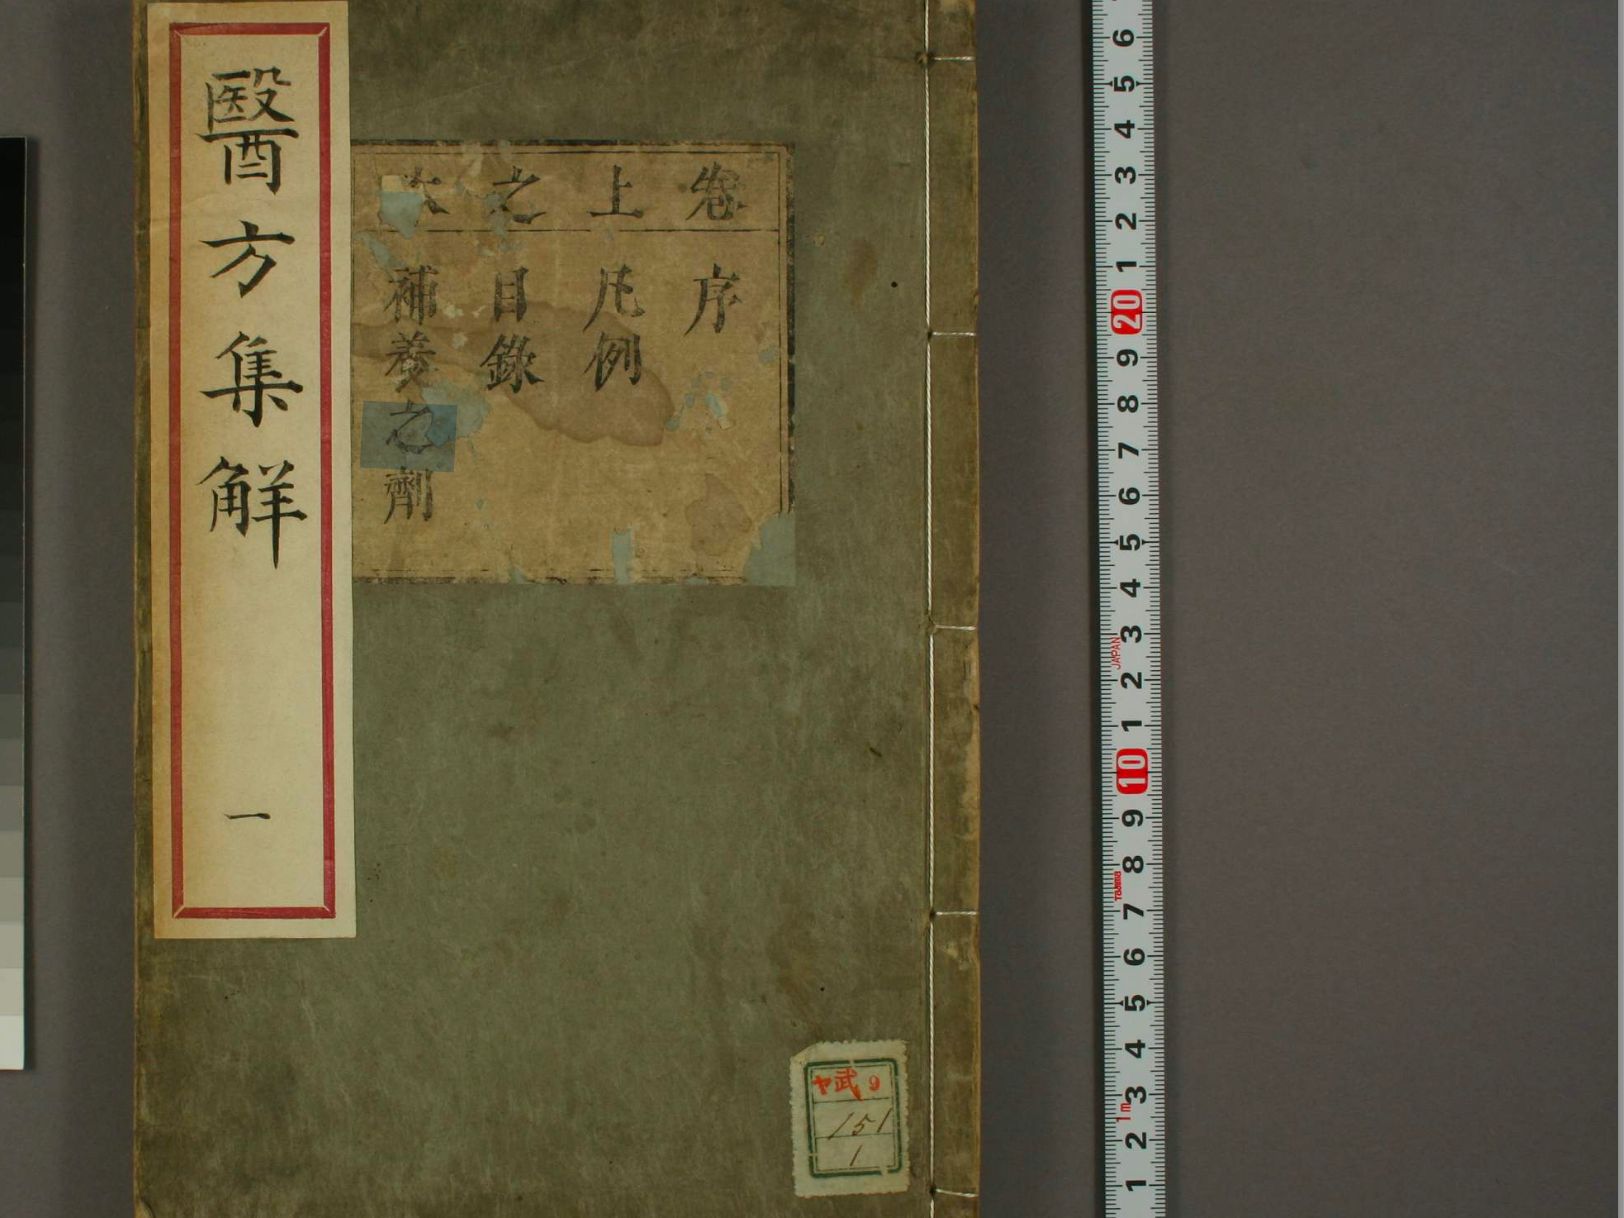 醫方集觧 一
卷 序
上 凡例
之 目錄
補養之劑
ヤ武 9
151
1
6
5
4
3
2
1
20
9
8
7
6
5
4
3
JAPAN
2
1
10
9
8
Tajima
7
6
5
4
3
1m
2
1